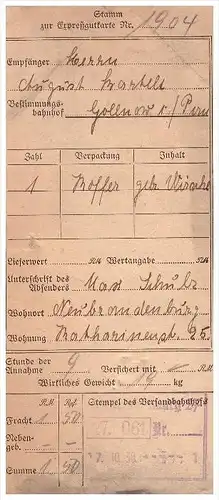 Stamm
zur Expreßgutkarte Nr. 1904
Empfänger Herrn
August Bartelt
Bestimmungs-
bahnhof Gollnow i/Pom
Zahl Verpackung Inhalt
1 Koffer gebr Wäsche
Lieferwert RM Wertangabe RM
Unterschrift des
Absenders Max Schulz
Wohnort Neubrandenburg
Wohnung Katharinenst. 25
Stunde der
Annahme 9 Versichert mit — RM
Wirkliches Gewicht 19 kg
RM Rpf Stempel des Versandbahnhofs
Fracht 1 50
Neben-
geb. — —
Summe 1 50